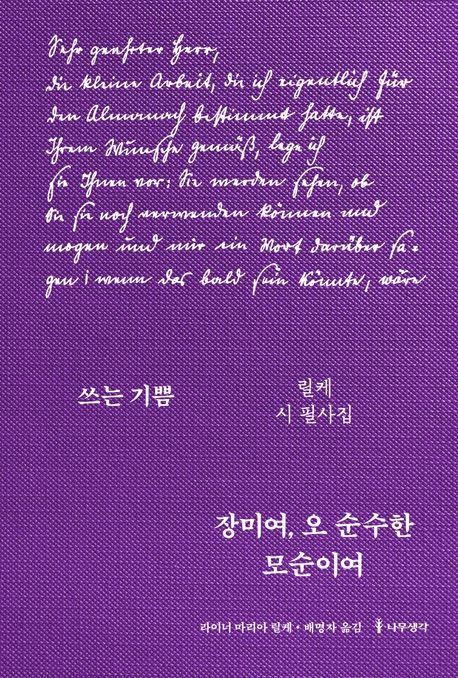 Sehr geehrter Herr,
die kleine Arbeit, die ich eigentlich für
den Almanach bestimmt hatte, ist
Ihrem Wunsche gemäß, lege ich
sie Ihnen vor: Sie werden sehen, ob
Sie sie noch verwenden können und
mögen und mir ein Wort darüber sa=
gen; wenn das bald sein könnte, wäre
쓰는 기쁨
릴케
시 필사집
장미여, 오 순수한
모순이여
라이너 마리아 릴케 • 배명자 옮김 나무생각